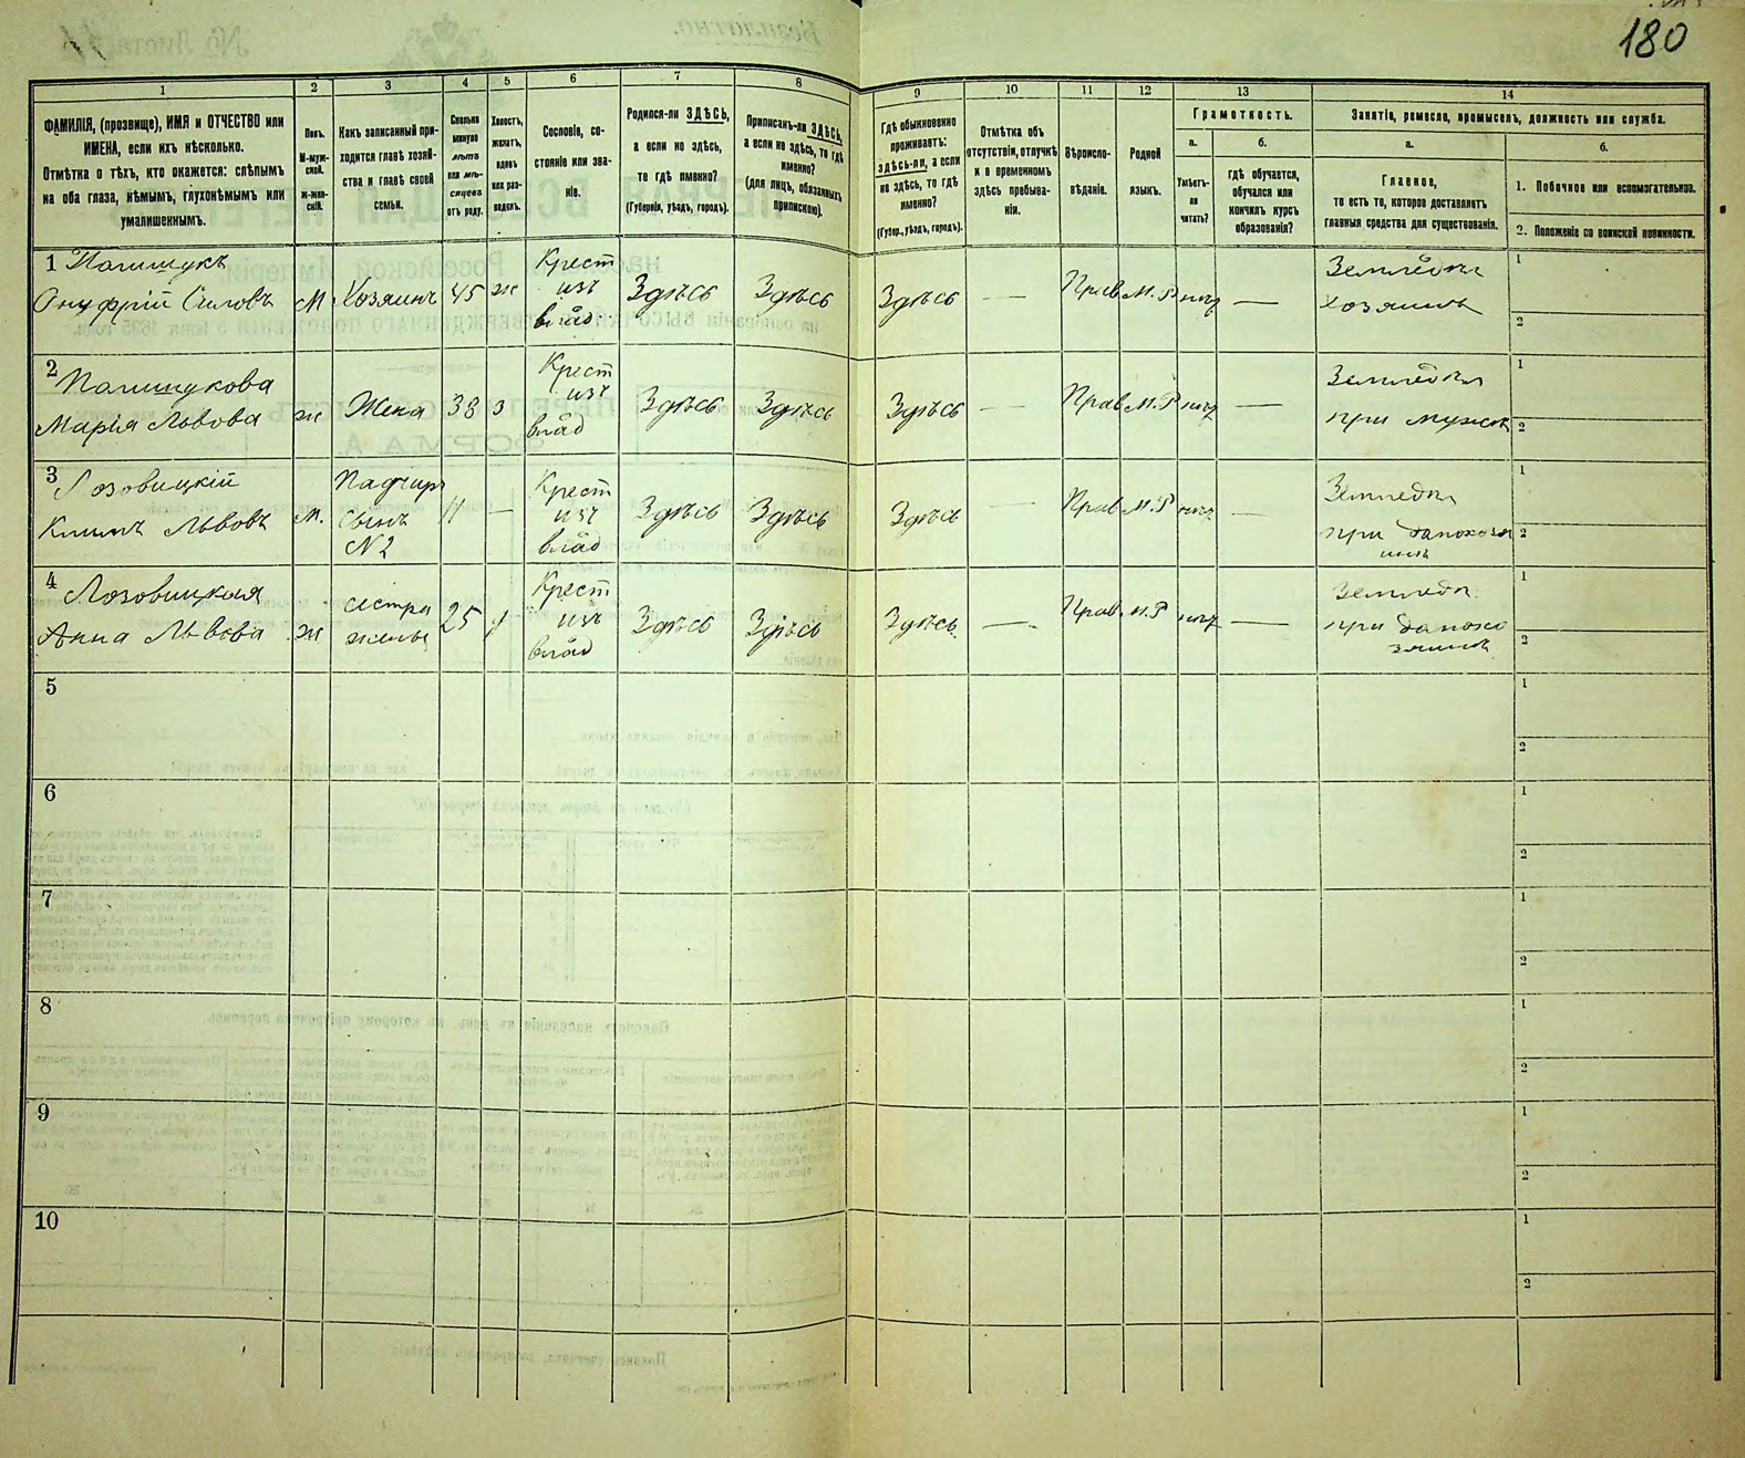 180
1
2
3
4
5
6
7
8
9
10
11
12
13
14
ФАМИЛІЯ, (прозвище), ИМЯ и ОТЧЕСТВО или
ИМЕНА, если ихъ нѣсколько.
Отмѣтка о тѣхъ, кто окажется: слѣпымъ
на оба глаза, нѣмымъ, глухонѣмымъ или
умалишеннымъ.
Полъ.
М-муж-
ской.
Ж-жен-
скій.
Какъ записанный при-
ходится главѣ хозяй-
ства и главѣ своей
семьи.
Сколько
минуло
лѣтъ
или мѣ-
сяцевъ
отъ роду.
Холостъ,
женатъ,
вдовъ
или раз-
веденъ.
Сословіе, со-
стояніе или зва-
ніе.
Родился-ли ЗДѢСЬ,
а если не здѣсь,
то гдѣ именно?
(Губернія, уѣздъ, городъ).
Приписанъ-ли ЗДѢСЬ,
а если не здѣсь, то гдѣ
именно?
(для лицъ, обязанныхъ
припискою).
Гдѣ обыкновенно
проживаетъ:
здѣсь-ли, а если
не здѣсь, то гдѣ
именно?
(Губер., уѣздъ, городъ).
Отмѣтка объ
отсутствіи, отлучкѣ
и о временномъ
здѣсь пребыва-
ніи.
Вѣроиспо-
вѣданіе.
Родной
языкъ.
Грамотность.
а.
б.
Умѣетъ-
ли
читать?
гдѣ обучается,
обучался или
кончилъ курсъ
образованія?
Занятіе, ремесло, промыселъ, должность или служба.
а.
Главное,
то есть то, которое доставляетъ
главныя средства для существованія.
б.
1. Побочное или вспомогательное.
2. Положеніе по воинской повинности.
1 Полищукъ
Онуфрій Силовъ М Хозяинъ 45 ж Крест
изъ
влад. Здѣсь Здѣсь Здѣсь — Прав М.Р нѣт — Земледѣл
хозяинъ
1
2
2 Полищукова
Марія Львова ж Жена 38 з Крест
изъ
влад Здѣсь Здѣсь Здѣсь — Прав М.Р нѣт — Земледѣл
при мужѣ
1
2
3 Лозовицкій
Климъ Львовъ м. Сынъ
N2 11 — Крест
изъ
влад Здѣсь Здѣсь Здѣсь — Прав М.Р нѣт — Земледѣл
при
1
2
4 Лозовицкая
Анна Львова ж сестра
жены 25 Крест
изъ
влад Здѣсь Здѣсь Здѣсь. — Прав М.Р нѣт — Земледѣл.
при
1
2
5
1
2
6
1
2
7
1
2
8
1
2
9
1
2
10
1
2